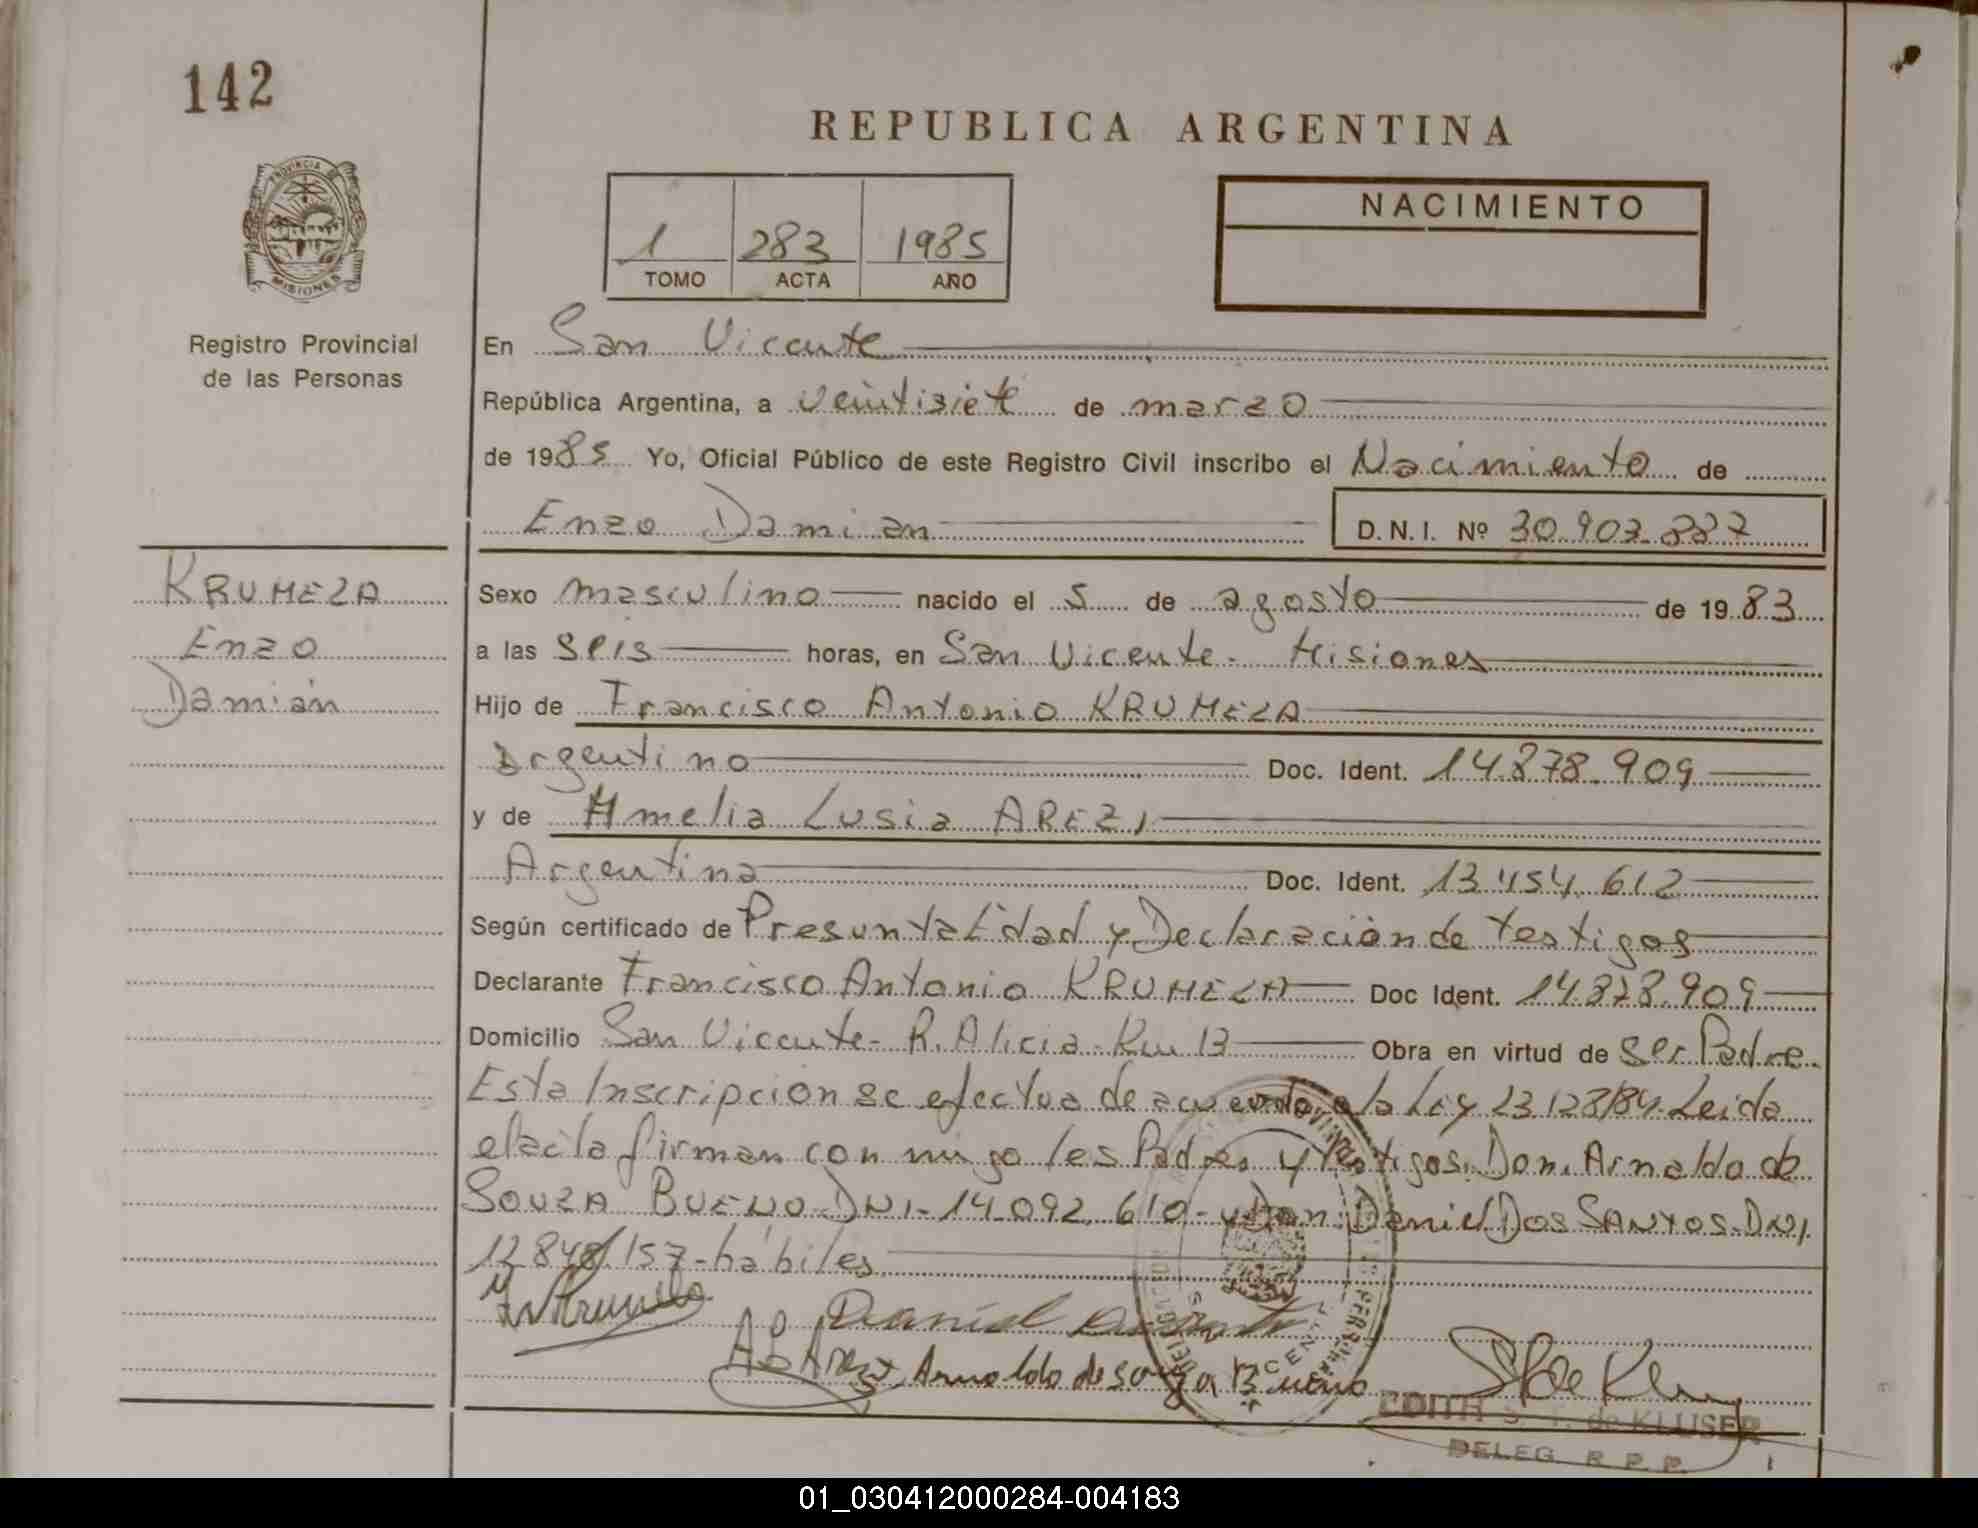 142
REPUBLICA ARGENTINA
PROVINCIA DE
MISIONES
Registro Provincial
de las Personas
1 283 1985
TOMO ACTA AÑO
NACIMIENTO
En San Vicente
República Argentina, a veintisiete de marzo
de 1985 Yo, Oficial Público de este Registro Civil inscribo el Nacimiento de
Enzo Damian D.N.I. Nº 30.903.887
KRUMEZA
Enzo
Damián
Sexo masculino nacido el 5 de agosto de 1983
a las seis horas, en San Vicente - Misiones
Hijo de Francisco Antonio KRUMEZA
Argentino Doc. Ident. 14.878.909
y de Amelia Lusia AREZI
Argentina Doc. Ident. 13.454.612
Según certificado de Presuntalidad y Declaración de testigos
Declarante Francisco Antonio KRUMEZA Doc Ident. 14.878.909
Domicilio San Vicente - R. Alicia - Km 13 Obra en virtud de ser Padre.
Esta Inscripción se efectua de acuerdo a la Ley 23.128/84. Leida
el acta firman con migo les Padres y testigos. Don. Arnaldo de
SOUZA BUENO. DNI - 14.092.610 - y Don Daniel DOS SANTOS - DNI
12.848.157 - hábiles
Arnoldo de souza Bueno
EDITH S. T. de KLUSER
DELEG. R. P. P.
01_030412000284-004183